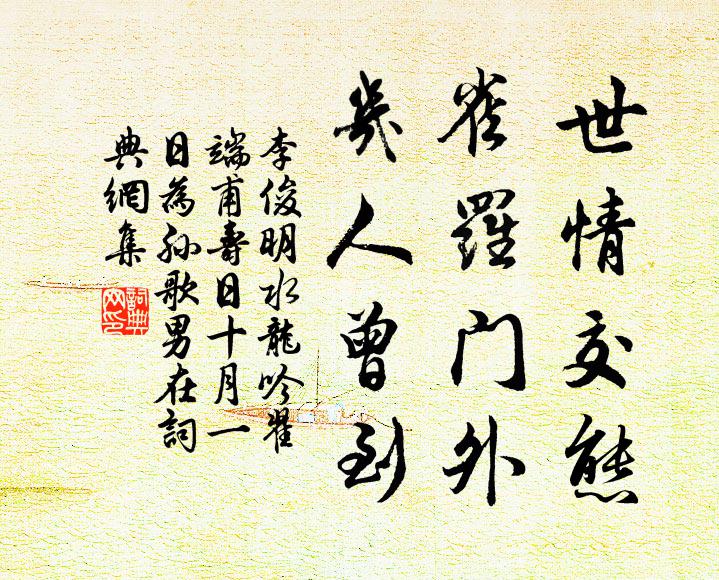 世情交態
雀羅门外
幾人曾到
李俊明水龍吟翟
端甫壽日十月一
日為孙歌男在詞
典網集
詞典
网印